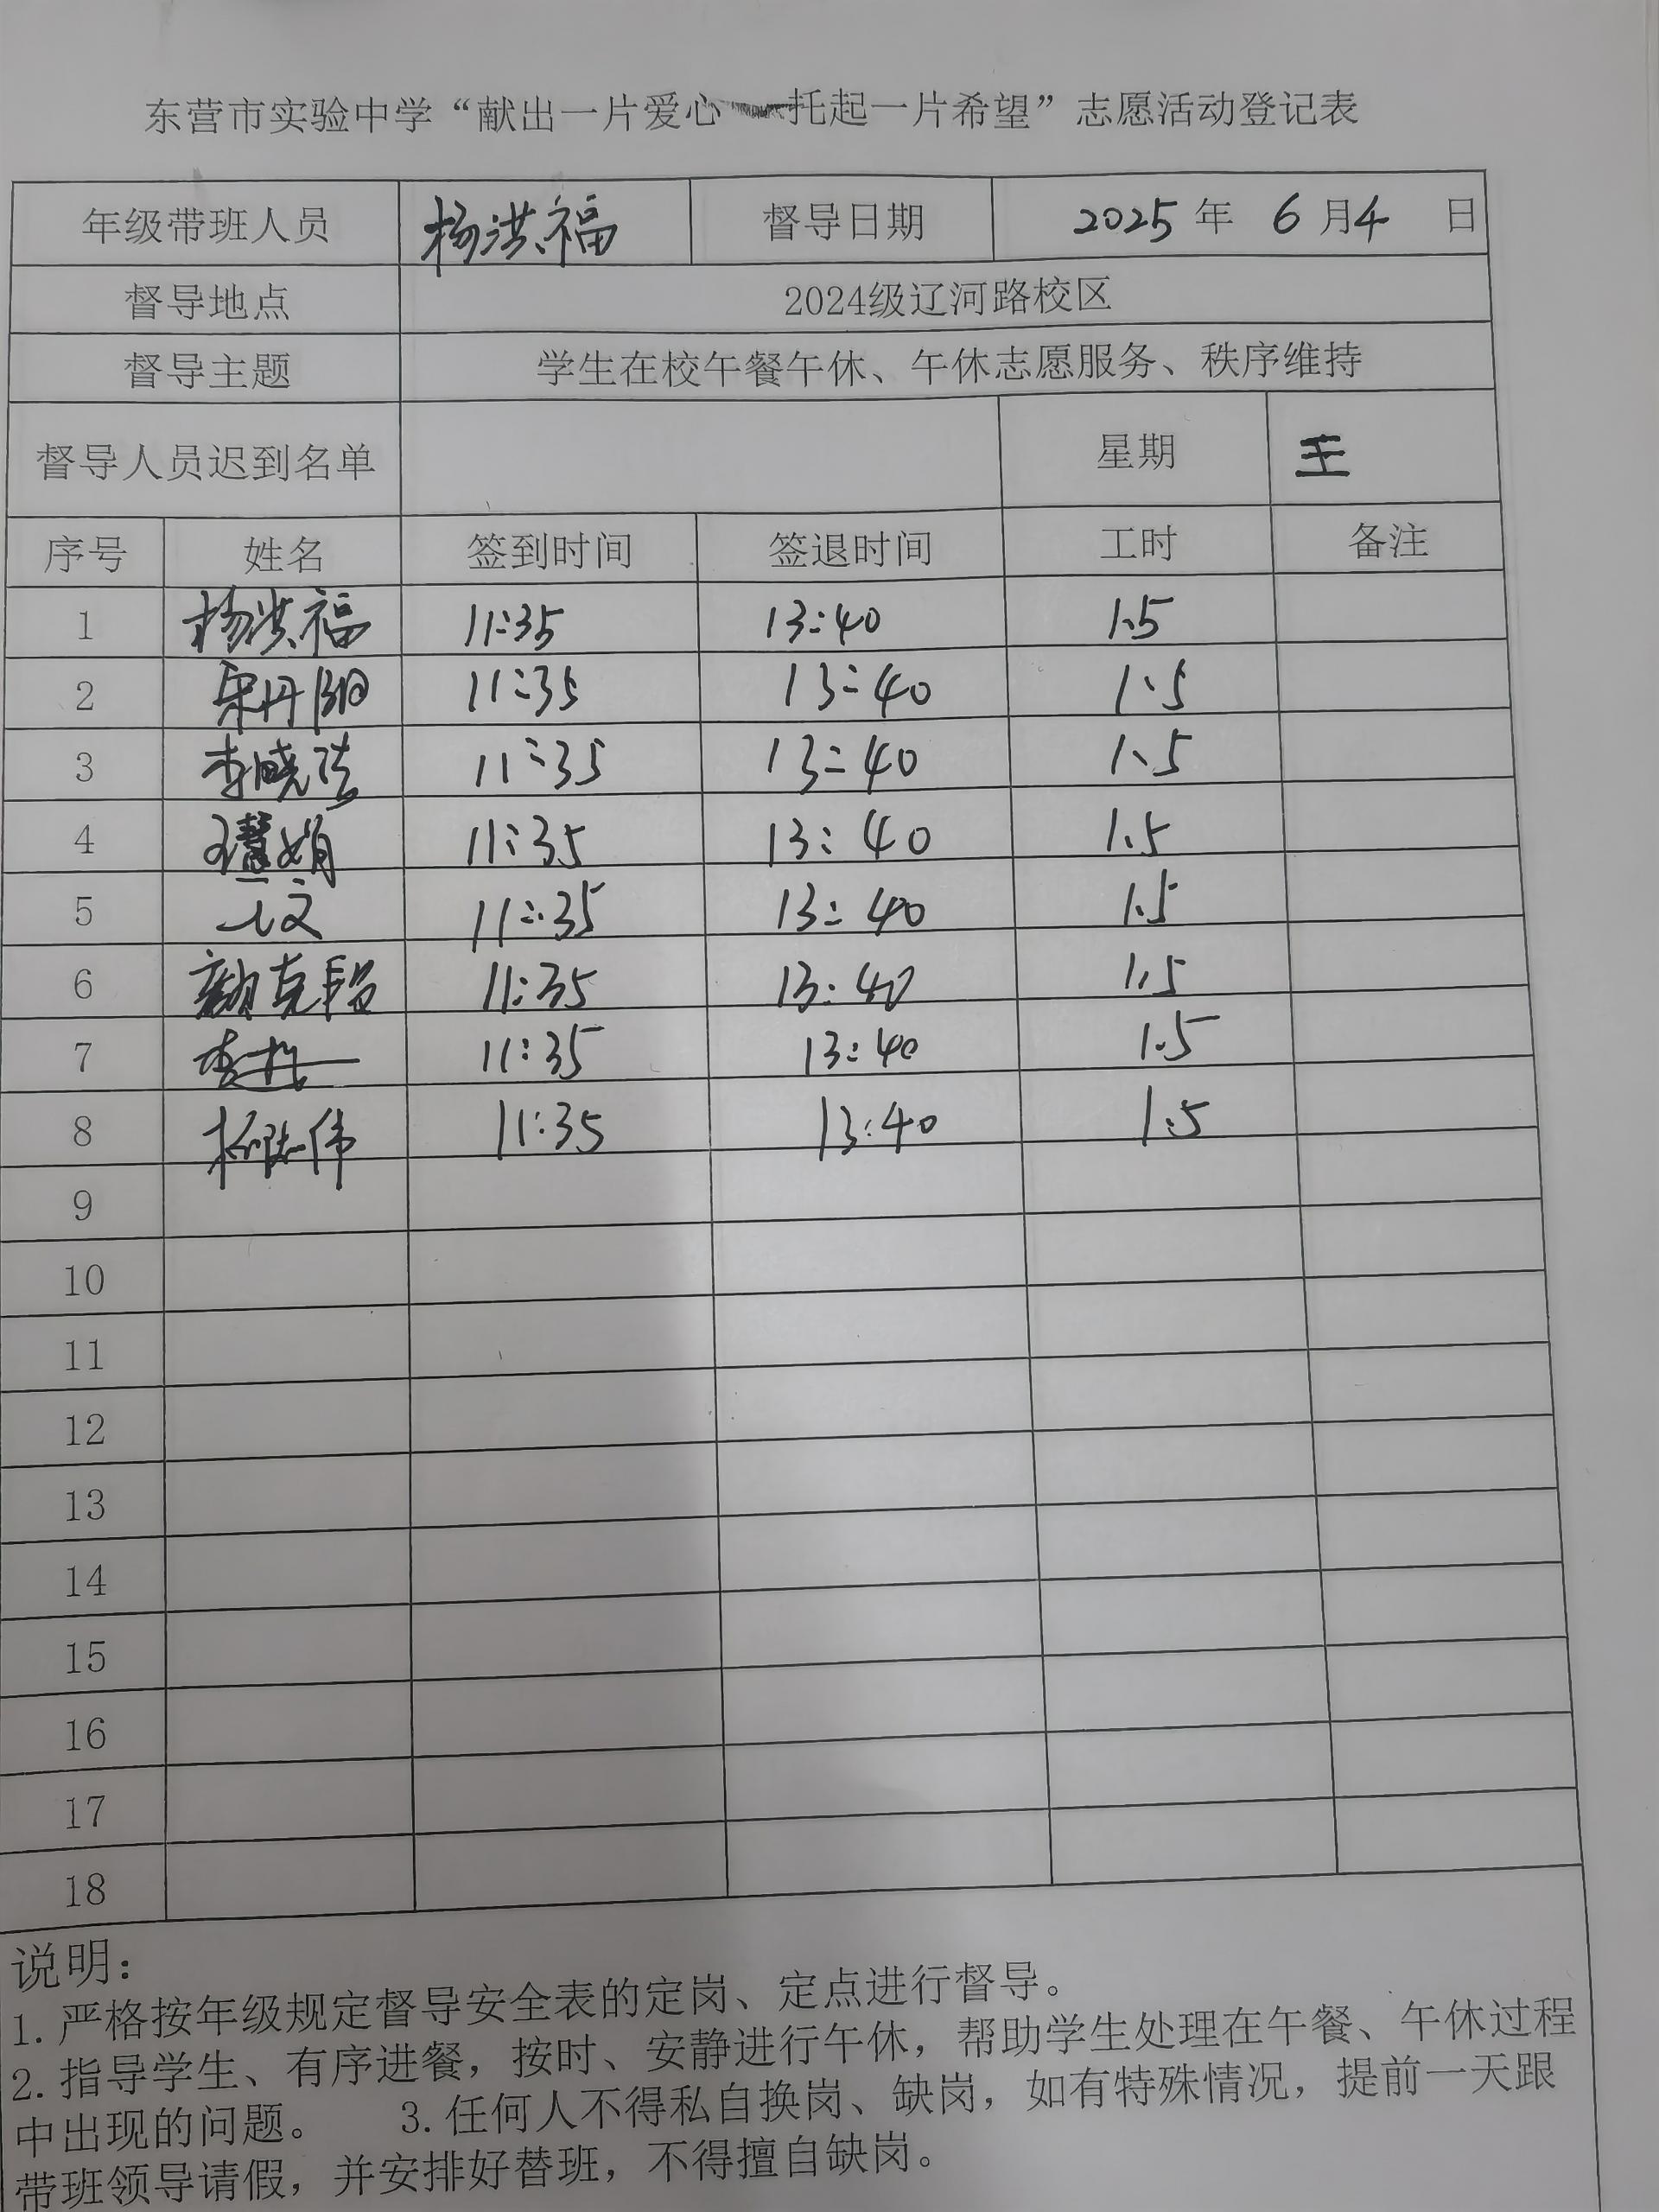 东营市实验中学“献出一片爱心 托起一片希望”志愿活动登记表
年级带班人员 杨洪福 督导日期 2025年 6月4 日
督导地点 2024级辽河路校区
督导主题 学生在校午餐午休、午休志愿服务、秩序维持
督导人员迟到名单 星期
序号 姓名 签到时间 签退时间 工时 备注
1 杨洪福 11:35 13:40 1.5
2 11:35 13:40 1.5
3 11:35 13:40 1.5
4 11:35 13:40 1.5
5 11:35 13:40 1.5
6 11:35 13:40 1.5
7 11:35 13:40 1.5
8 11:35 13:40 1.5
9
10
11
12
13
14
15
16
17
18
说明：
1.严格按年级规定督导安全表的定岗、定点进行督导。
2.指导学生、有序进餐，按时、安静进行午休，帮助学生处理在午餐、午休过程
中出现的问题。 3.任何人不得私自换岗、缺岗，如有特殊情况，提前一天跟
带班领导请假，并安排好替班，不得擅自缺岗。